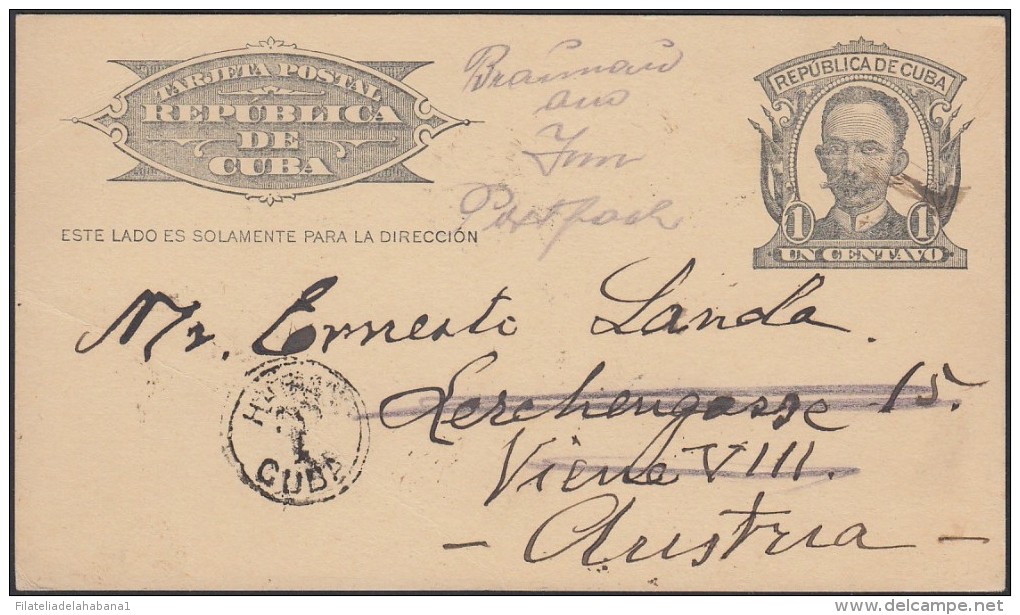 TARJETA POSTAL
REPUBLICA
DE
CUBA
ESTE LADO ES SOLAMENTE PARA LA DIRECCIÓN
Braunau
am
Inn
Postfach
REPÚBLICA DE CUBA
1 1
UN CENTAVO
Mr. Ernesto Landa.
Lerchengasse 15.
Viene VIII.
- Austria -
CUBA
Filateliadelahabana1
delcampe.net